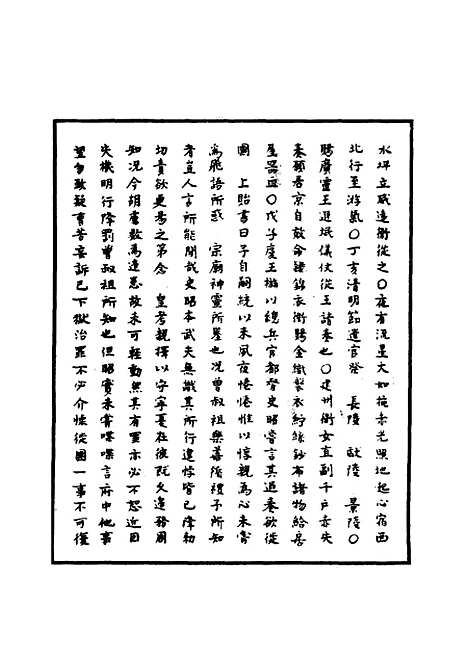 水坪立威遠衛從之○夜有流星大如椀赤光照地起心宿西
北行至游氣○丁亥清明節遣官祭　長陵　獻陵　景陵○
賜廣靈王遜坭儀仗從王請奏也○建州衛女直副千戶赤失
奏願居京自效命隸錦衣衛賜金織襲衣紵絲鈔布諸物給房
屋器皿○戊子慶王　以總兵官都督史昭嘗言其過奏欲徙
國　上貽書曰予自嗣統以來夙夜惓惓惟以惇親為心未嘗
為飛語所惑　宗廟神靈所鑒也况曾叔祖樂善循禮予所知
者豈人言所能間哉史昭本武夫無識其所行違悖皆已降勑
切責欲更易之第念　皇考親擇以守寧夏在彼既久邊務周
知况今胡虜數為邊患故未可輕動無其有罪亦必不恕近因
失機明行降罰曾叔祖所知也但昭實未嘗喋喋言府中他事
望勿致疑賈苦妄訴已下獄治罪不必介懷從國一事不可僅